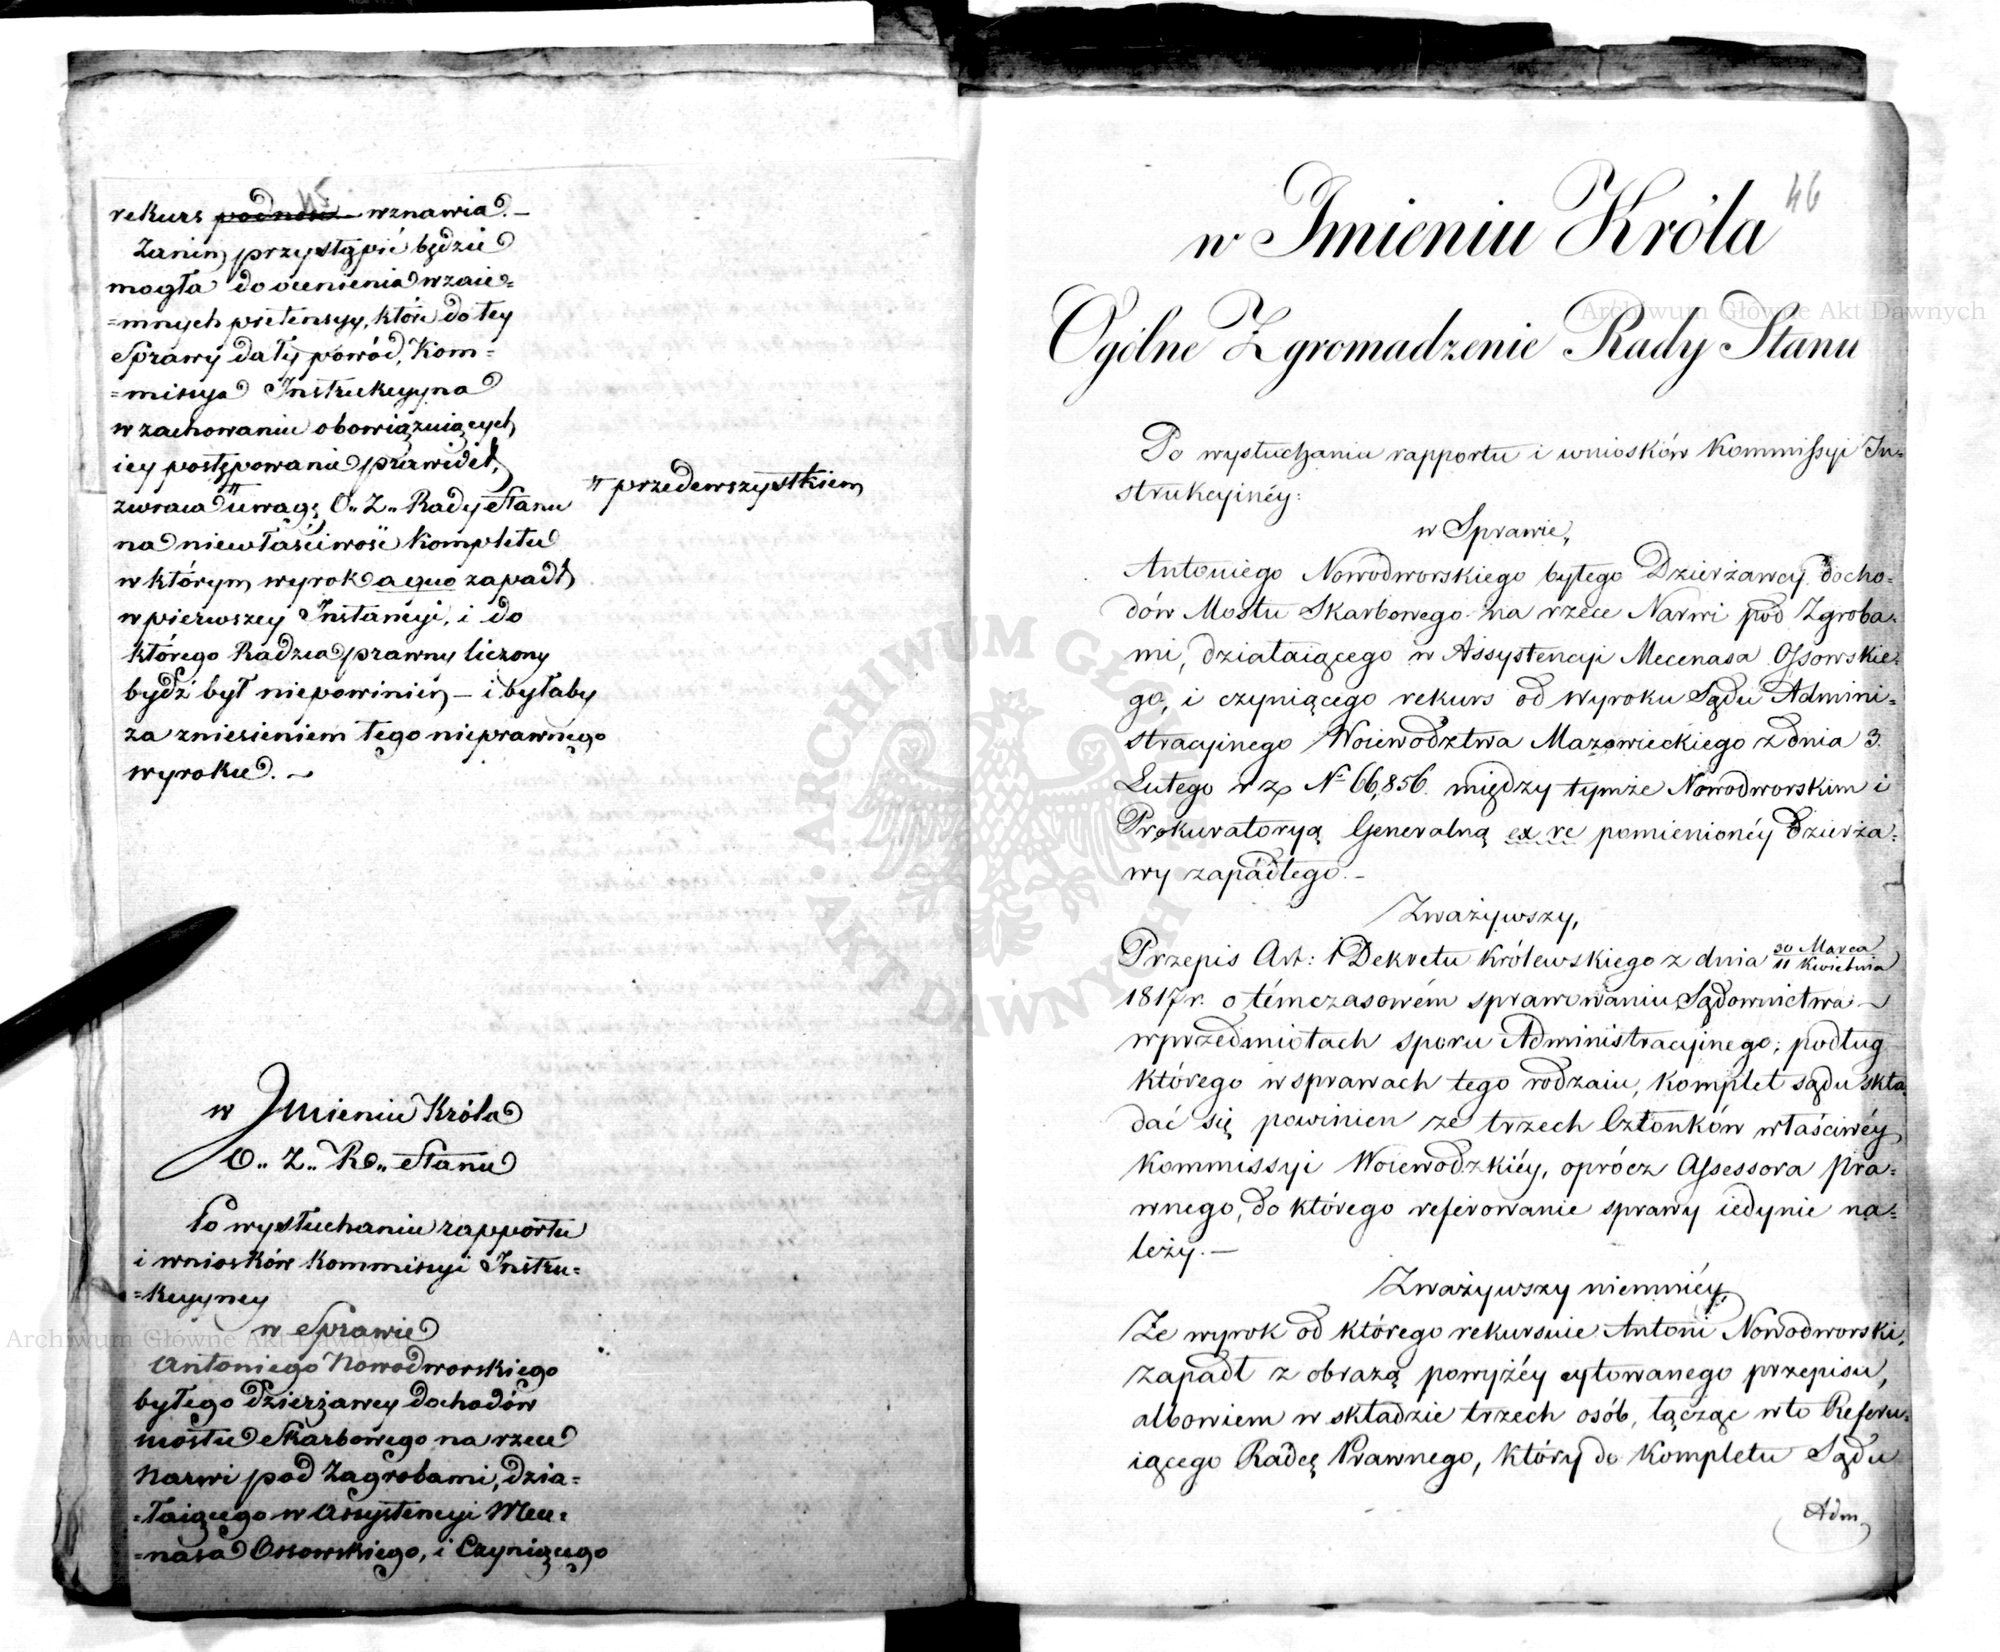 rekurs podnosi wznawia. –
Zanim przystąpić będzie
mogła do ocenienia wzaie=
=mnych pretensyy, które do tey
Sprawy dały powód, Kom=
=missya Instrukcyyna
w zachowaniu obowiązuiących
iey postępowania prawideł,
zwraca uwagę O. Z. Rady Stanu
przedewszystkiem
na niewłaściwość kompletu
w którym wyrok a quo zapadł
w pierwszey Instancyi, i do
którego Radzca prawny liczony
bydź był niepowinien – i byłaby
za zniesieniem tego nieprawnego
wyroku. –
w Imieniu Króla
O. Z. R. Stanu
Po wysłuchaniu rapportu
i wniosków Kommissyi Instru=
=kcyyney
w Sprawie
Antoniego Nowodworskiego
byłego Dzierżawcy dochodów
mostu Skarbowego na rzece
Narwi pod Zagrobami, dzia=
=łaiącego w Assystencyi Mece=
=nasa Ossowskiego, i Czyniącego
46
w Imieniu Króla
Ogólne Zgromadzenie Rady Stanu
Po wysłuchaniu rapportu i wniosków Kommissyi In=
strukcyinéy:
w Sprawie,
Antoniego Nowodworskiego byłego Dzierżawcy docho=
dów Mostu Skarbowego na rzece Narwi pod Zgroba=
mi, działaiącego w Assystencyi Mecenasa Ossowskie=
go, i czyniącego rekurs od Wyroku Sądu Admini=
stracyinego Woiewodztwa Mazowieckiego z dnia 3
Lutego r z № 66,856. między tymże Nowodworskim i
Prokuratoryą Generalną ex re pomienionéy dzierża=
wy zapadłego. –
Zważywszy,
Przepis Art: 1 Dekretu Królewskiego z dnia 30 Marca / 11 Kwietnia
1817 r. o témczasowém sprawowaniu Sądownictwa –
w przedmiotach sporu Administracyinego; podług
którego w sprawach tego rodzaiu, komplet sądu skła
dać się powinien ze trzech Członków właściwéy
Kommissyi Woiewodzkiéy, oprócz Assessora Pra=
wnego, do którego referowanie sprawy iedynie na=
leży. –
Zważywszy niemniéy,
Że wyrok od którego rekursuie Antoni Nowodworski,
zapadł z obrazą powyżéy cytowanego przepisu,
albowiem w składzie trzech osób, łącząc w to Referu=
iącego Radcę Prawnego, który do kompletu Sądu
Adm
Archiwum Główne Akt Dawnych
Archiwum Główne Akt Dawnych
ARCHIWUM GŁÓWNE AKT DAWNYCH